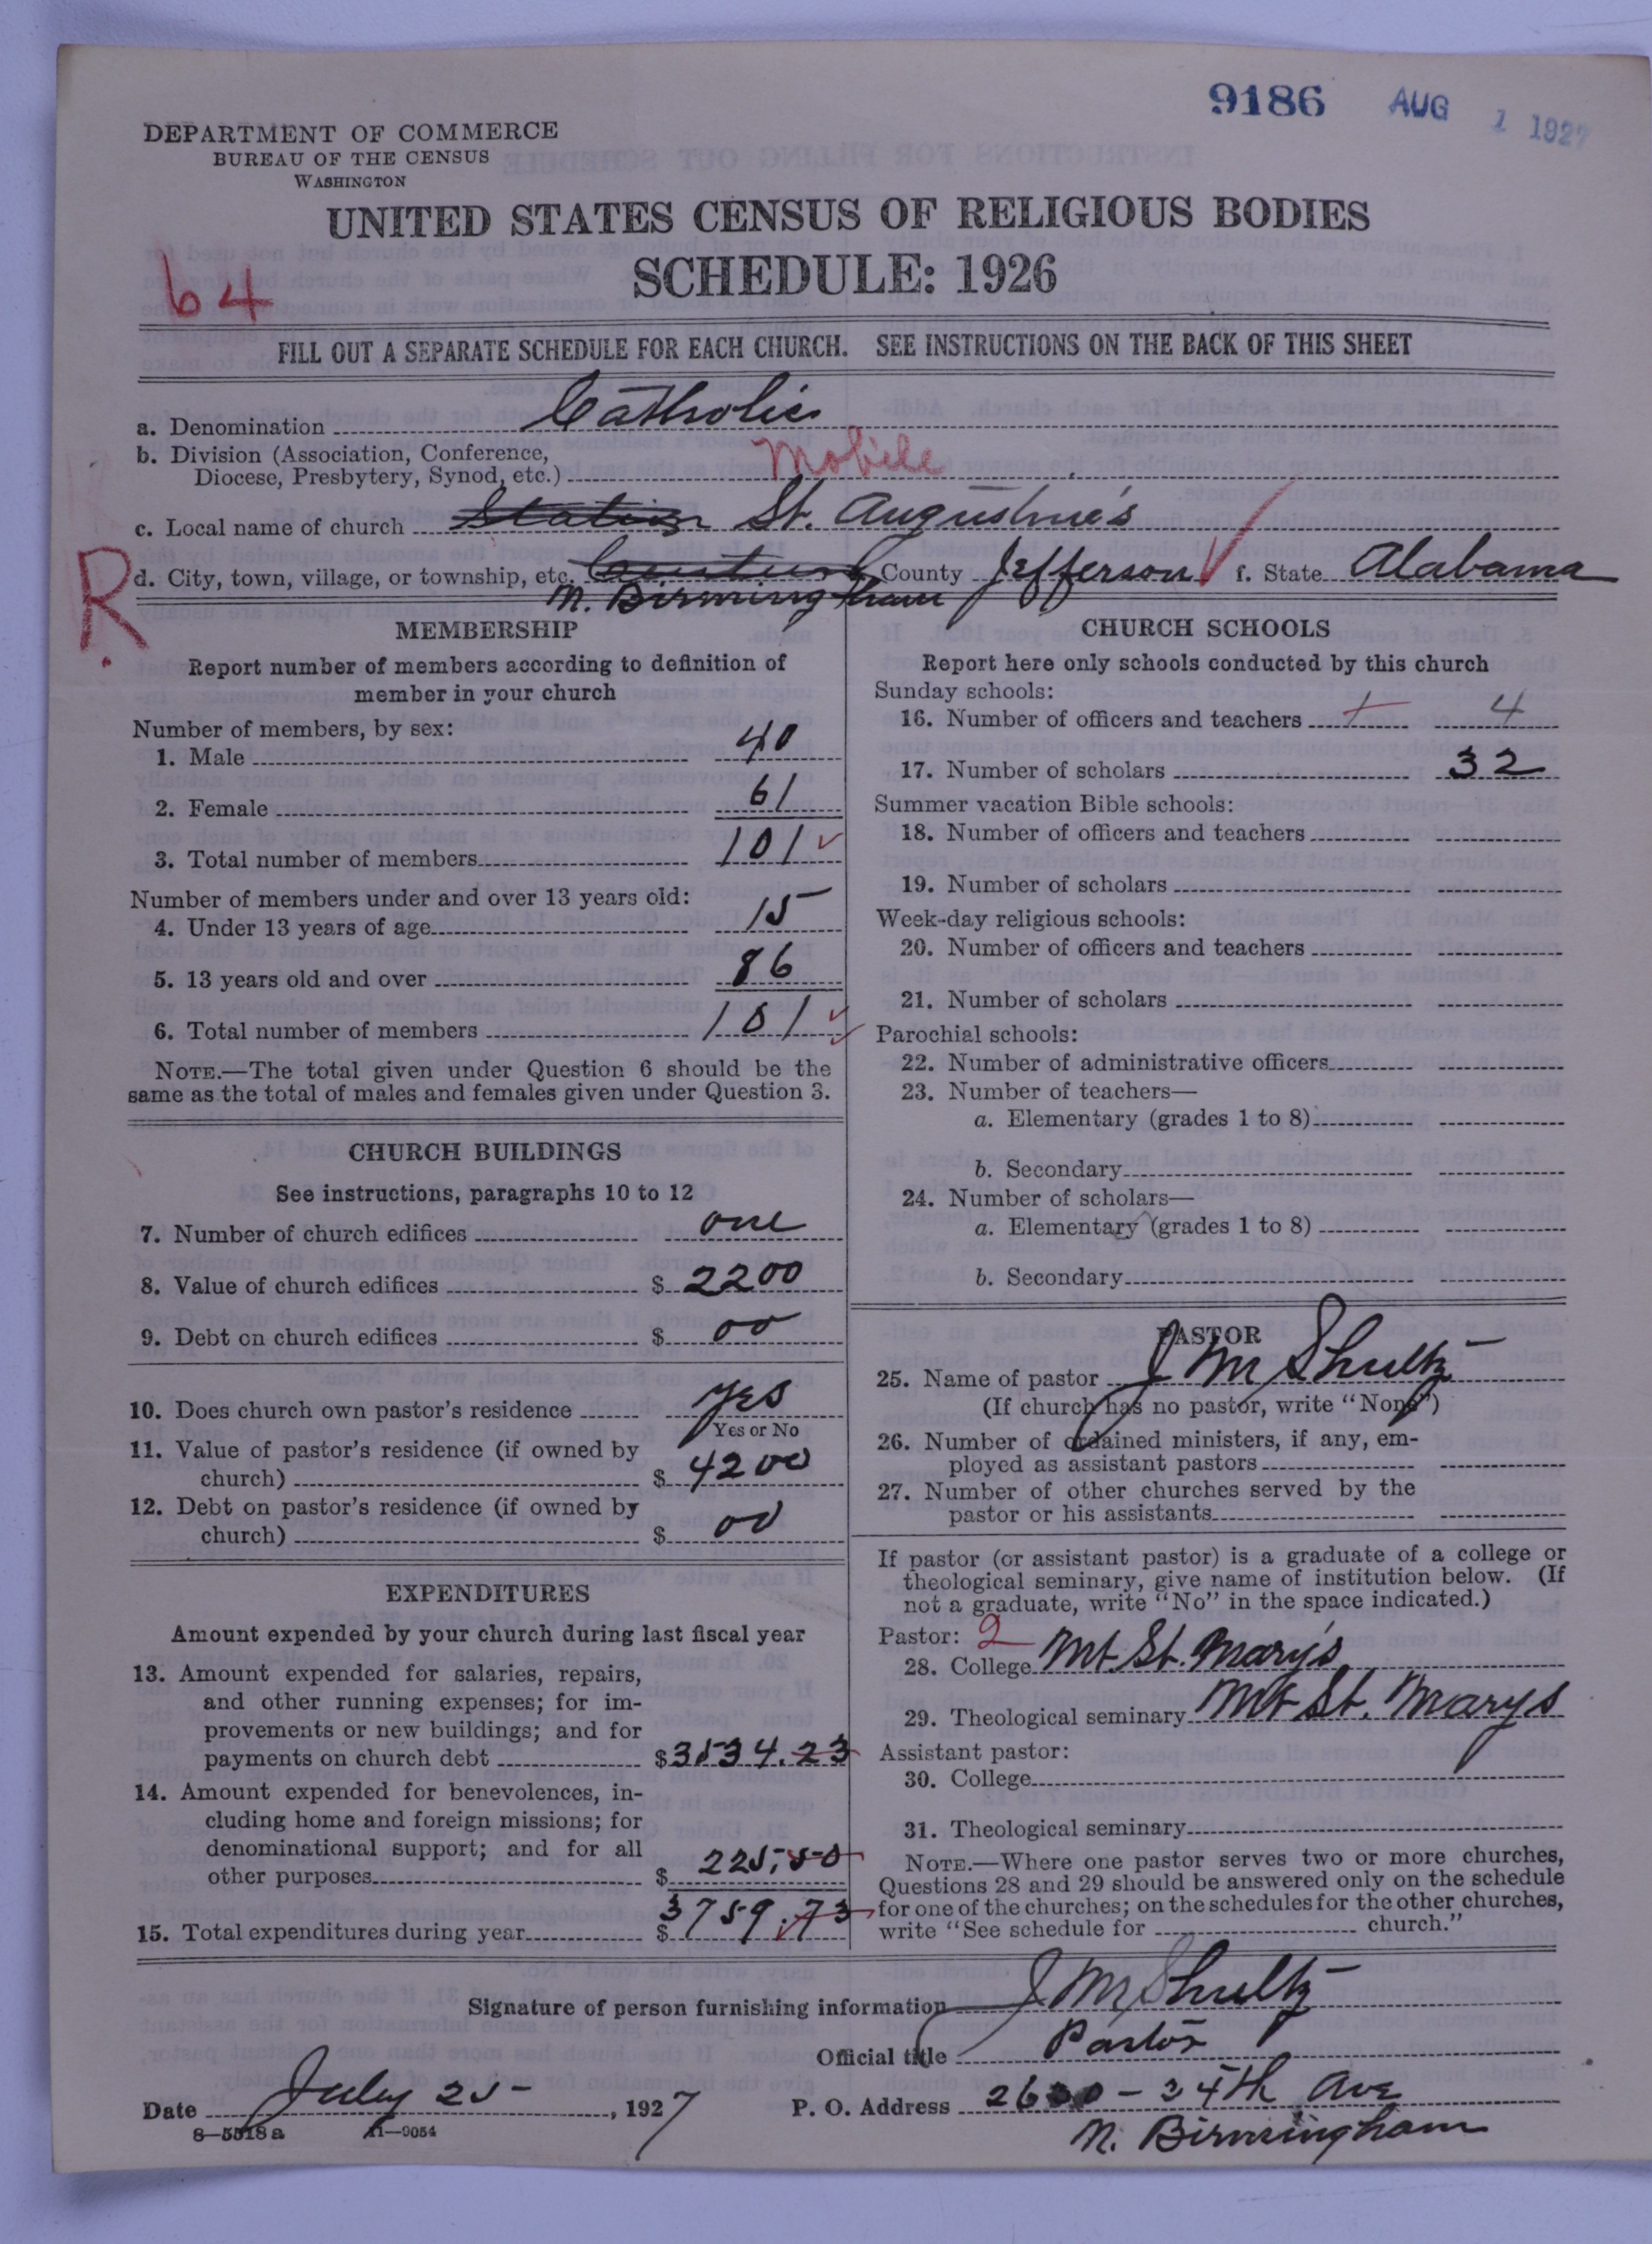 9186 AUG 1 1927
DEPARTMENT OF COMMERCE
BUREAU OF THE CENSUS
WASHINGTON
UNITED STATES CENSUS OF RELIGIOUS BODIES
SCHEDULE: 1926
64
FILL OUT A SEPARATE SCHEDULE FOR EACH CHURCH. SEE INSTRUCTIONS ON THE BACK OF THIS SHEET
a. Denomination Catholic
b. Division (Association, Conference,
Diocese, Presbytery, Synod, etc.) Mobile
c. Local name of church Station St. Augustine's
R.
d. City, town, village, or township, etc. County Jefferson f. State Alabama
N. Birmingham
MEMBERSHIP
Report number of members according to definition of
member in your church
Number of members, by sex:
1. Male 40
2. Female 61
3. Total number of members 101
Number of members under and over 13 years old:
4. Under 13 years of age 15
5. 13 years old and over 86
6. Total number of members 101
NOTE.—The total given under Question 6 should be the
same as the total of males and females given under Question 3.
CHURCH BUILDINGS
See instructions, paragraphs 10 to 12
7. Number of church edifices one
8. Value of church edifices $ 2200
9. Debt on church edifices $ 00
10. Does church own pastor's residence yes
Yes or No
11. Value of pastor's residence (if owned by
church) $ 4200
12. Debt on pastor's residence (if owned by
church) $ 00
EXPENDITURES
Amount expended by your church during last fiscal year
13. Amount expended for salaries, repairs,
and other running expenses; for im-
provements or new buildings; and for
payments on church debt $ 3534.23
14. Amount expended for benevolences, in-
cluding home and foreign missions; for
denominational support; and for all
other purposes $ 225.50
15. Total expenditures during year $ 3759.73
CHURCH SCHOOLS
Report here only schools conducted by this church
Sunday schools:
16. Number of officers and teachers 4
17. Number of scholars 32
Summer vacation Bible schools:
18. Number of officers and teachers
19. Number of scholars
Week-day religious schools:
20. Number of officers and teachers
21. Number of scholars
Parochial schools:
22. Number of administrative officers
23. Number of teachers—
a. Elementary (grades 1 to 8)
b. Secondary
24. Number of scholars—
a. Elementary (grades 1 to 8)
b. Secondary
PASTOR
25. Name of pastor J M Shultz
(If church has no pastor, write "None")
26. Number of ordained ministers, if any, em-
ployed as assistant pastors
27. Number of other churches served by the
pastor or his assistants
If pastor (or assistant pastor) is a graduate of a college or
theological seminary, give name of institution below. (If
not a graduate, write "No" in the space indicated.)
Pastor: 2
28. College Mt St. Mary's
29. Theological seminary Mt St. Marys
Assistant pastor:
30. College
31. Theological seminary
NOTE.—Where one pastor serves two or more churches,
Questions 28 and 29 should be answered only on the schedule
for one of the churches; on the schedules for the other churches,
write "See schedule for church."
Signature of person furnishing information J M Shultz
Official title Pastor
Date July 25, 1927 P. O. Address 2630 - 34th Ave
8—5518a 11—9054 N. Birmingham